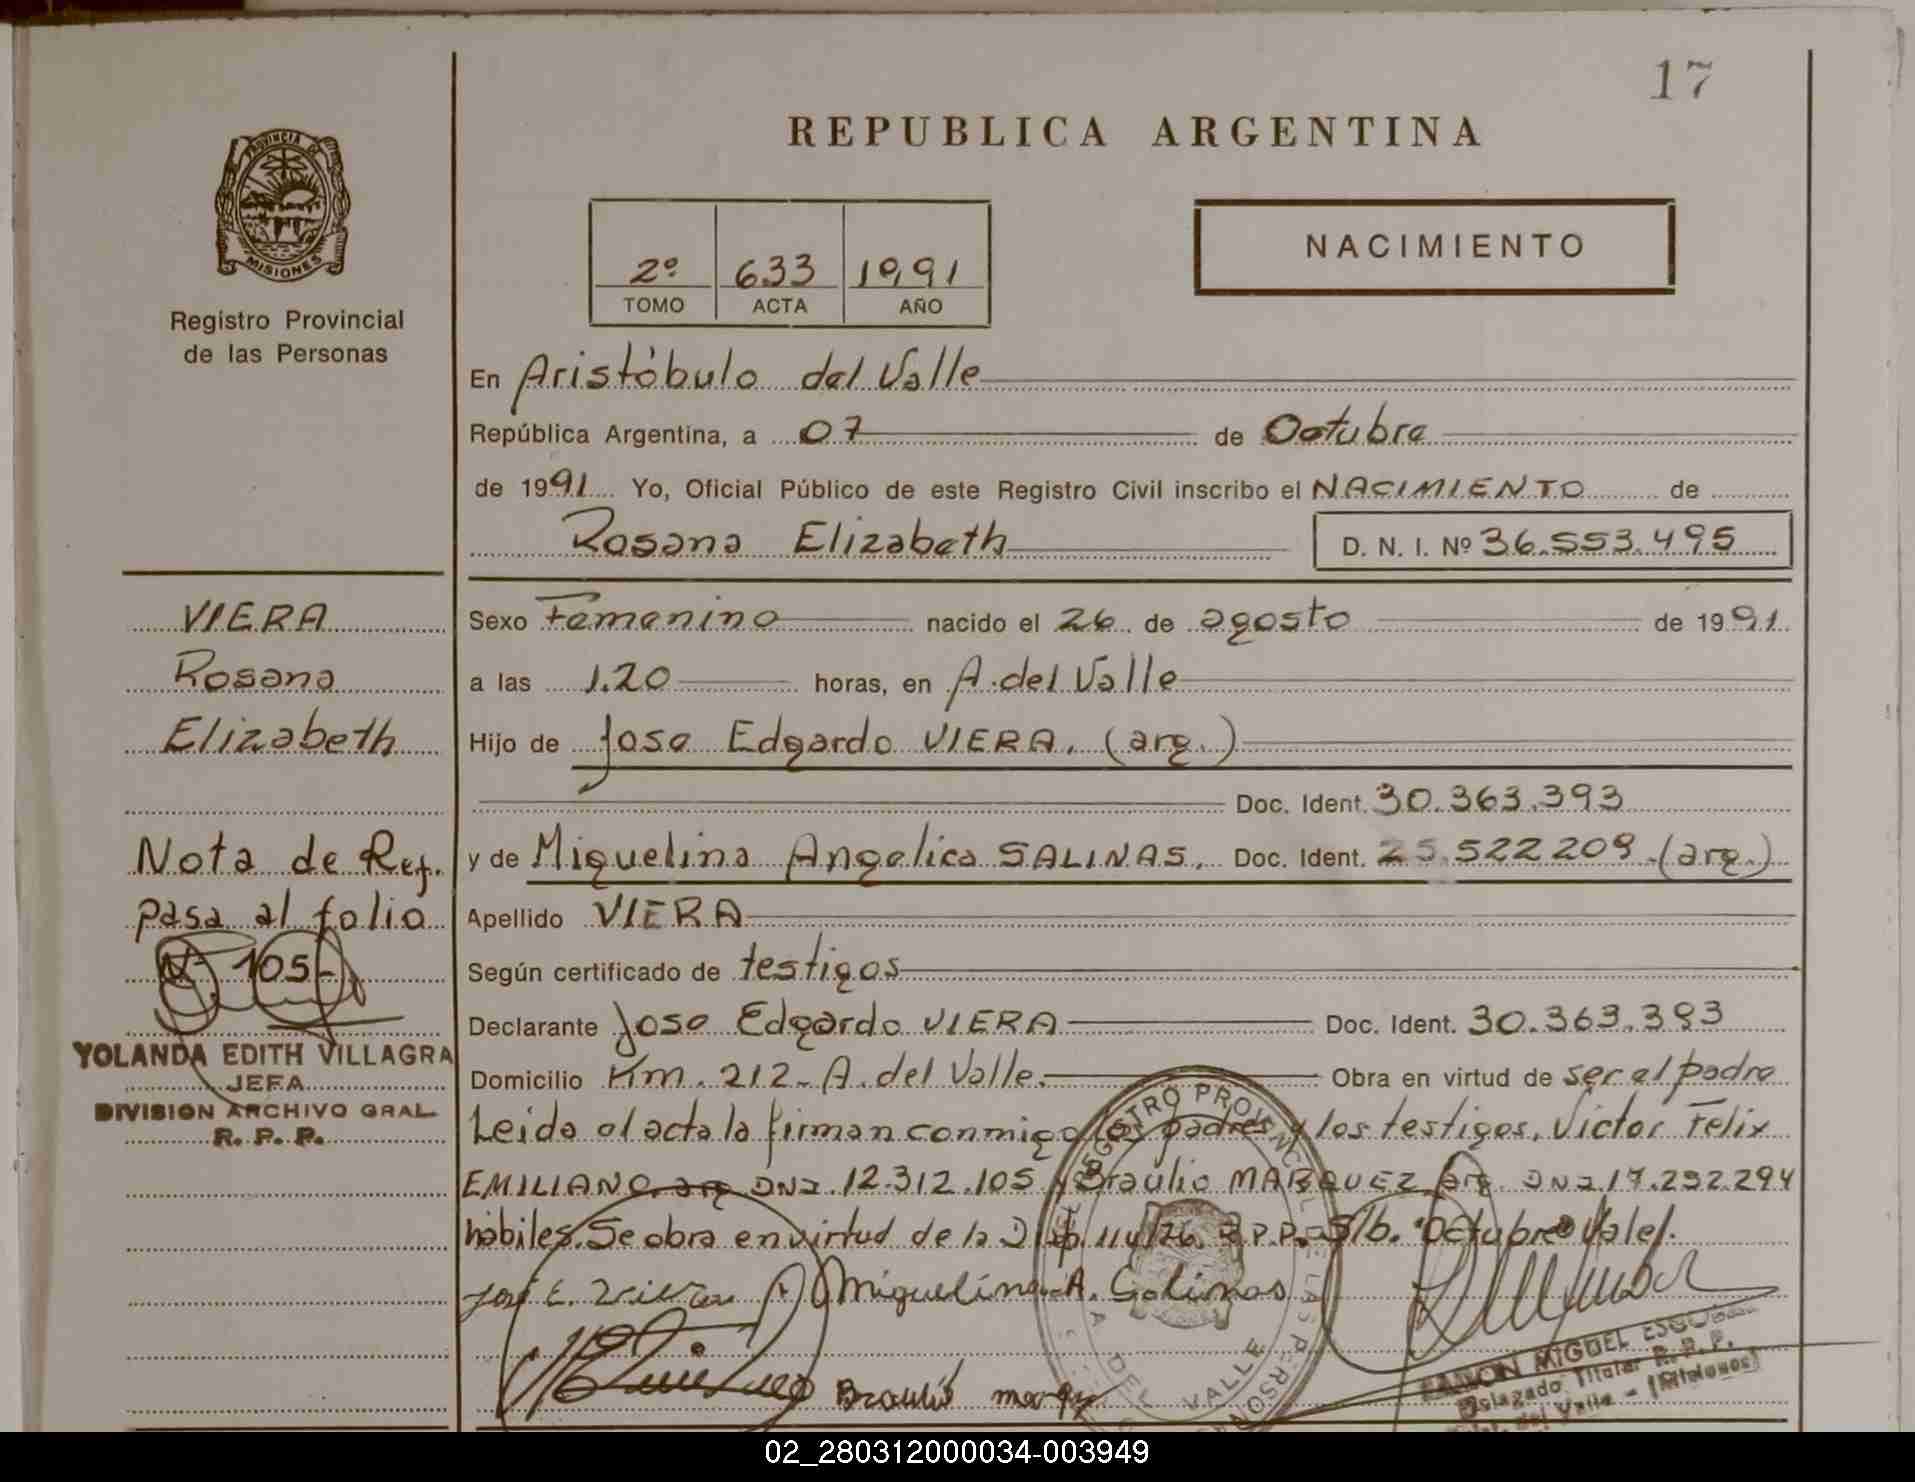 17
REPUBLICA ARGENTINA
PROVINCIA DE
MISIONES
Registro Provincial
de las Personas
2º 633 1991
TOMO ACTA AÑO
NACIMIENTO
En Aristóbulo del Valle
República Argentina, a 07 de Octubre
de 1991 Yo, Oficial Público de este Registro Civil inscribo el NACIMIENTO de
Rosana Elizabeth D. N. I. Nº 36.553.495
VIERA
Rosana
Elizabeth
Nota de Ref.
pasa al folio
Nº 105-
YOLANDA EDITH VILLAGRA
JEFA
DIVISION ARCHIVO GRAL.
R. P. P.
Sexo Femenino nacido el 26 de agosto de 1991
a las 1.20 horas, en A. del Valle
Hijo de Jose Edgardo VIERA. (arg.)
Doc. Ident. 30.363.393
y de Miquelina Angelica SALINAS. Doc. Ident. 25.522209 (arg.)
Apellido VIERA
Según certificado de testigos
Declarante Jose Edgardo VIERA Doc. Ident. 30.363.393
Domicilio Km. 212- A. del Valle. Obra en virtud de ser el padre
Leida el acta la firman conmigo los padres y los testigos, Victor Felix
EMILIANO arg DNI. 12.312.105 y Braulio MARQUEZ arg. DNI 17.292.294
hábiles. Se obra en virtud de la Disp. 114/76. R.P.P. S/b. "Octubre" Vale.
José E. Viera Miguelina A. Salinas
Braulio
REGISTRO PROVINCIAL DE LAS PERSONAS
DEL VALLE
RAMON MIGUEL
Delegado Titular R. P. P.
del Valle - (Misiones)
02_280312000034-003949